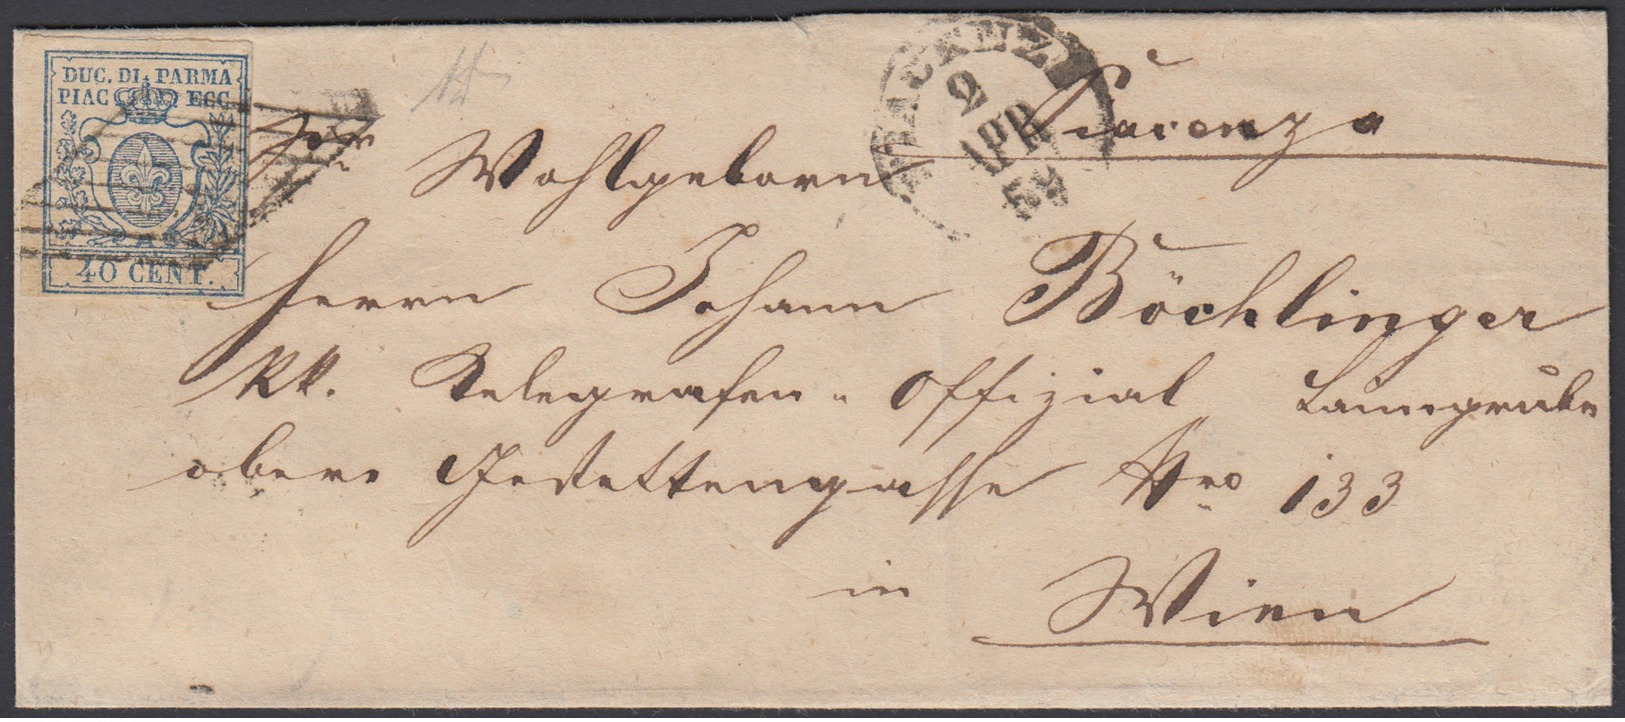 DUC. DI PARMA
PIAC ECC
40 CENT.
PIACENZA
2
APR
59
Piacenza
Wohlgeborn
Herrn Johann Böchlinger
KK. Telegrafen-Offizial, Laimgrube
obere Gestettengasse Nro 133
in Wien